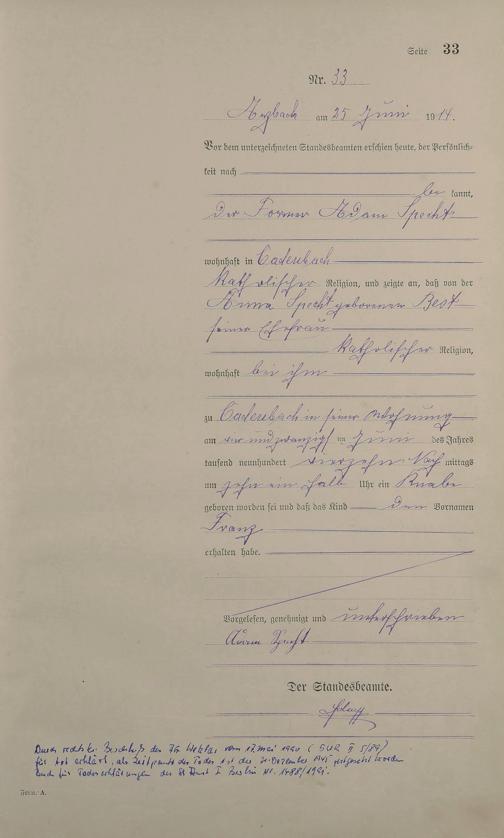 Seite 33
Nr. 33
Arzbach am 25 Juni 1914.
Vor dem unterzeichneten Standesbeamten erschien heute, der Persönlich-
keit nach
be kannt,
der Former Adam Specht
wohnhaft in Cadenbach
kath olischer Religion, und zeigte an, daß von der
Anna Specht geborenen Best
seiner Ehefrau
katholischer Religion,
wohnhaft bei ihm
zu Cadenbach in seiner Wohnung
am vier und zwanzigst en Juni des Jahres
tausend neunhundert vierzehn Nach mittags
um zehn ein halb Uhr ein Knabe
geboren worden sei und daß das Kind den Vornamen
Franz
erhalten habe.
Vorgelesen, genehmigt und unterschrieben
Adam Specht
Der Standesbeamte.
Durch Beschluß des AG vom 17. Mai 1990 (5UR II 5/89)
für tot erklärt, als Zeitpunkt des Todes ist der 31. Dezember 1945 festgesetzt worden
Buch für Todeserklärungen des St Amt I Berlin Nr.
Form. A.